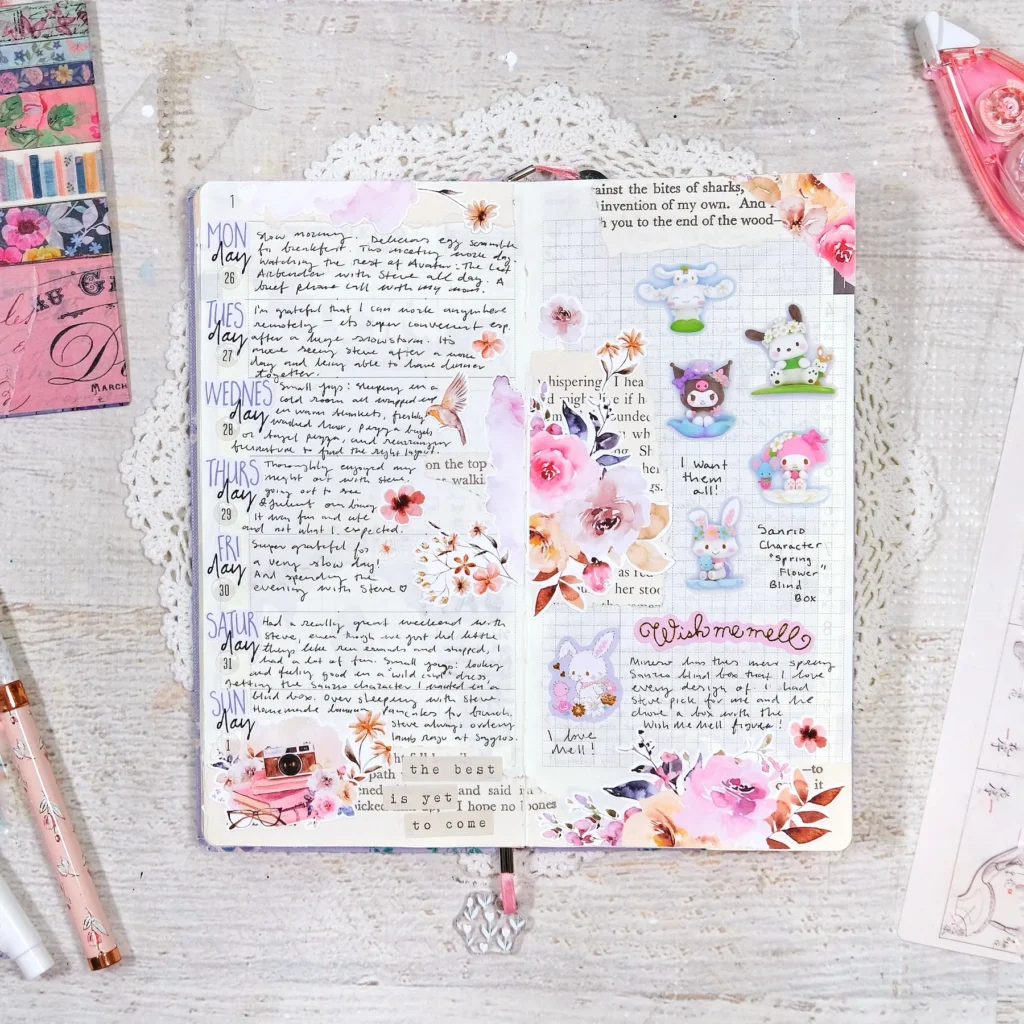 1
MON
day
26
Slow morning. Delicious egg scramble
for breakfast. Two meeting work day.
Watching the rest of Avatar: The Last
Airbender with Steve all day. A
brief phone call with my mom.
TUES
day
27
I'm grateful that I can work anywhere
remotely – its super convenient esp.
after a huge snowstorm. It's
nice seeing Steve after a work
day and being able to have dinner
together.
WEDNES
day
28
Small joys: sleeping in a
cold room all wrapped up
in warm blankets, freshly
washed hair, pizza bagels
or bagel pizza, and rearranging
furniture to find the right layout.
THURS
day
29
Thoroughly enjoyed my
night out with Steve,
going out to see
It was fun and
and not what I expected.
on the top
as walki
FRI
day
30
Super grateful for
a very slow day!
And spending the
evening with Steve ♡
SATUR
day
31
Had a really great weekend with
Steve, even though we just did little
things like run errands and shopped, I
had a lot of fun. Small joys: looking
and feeling good in a "wild card" dress,
getting the Sanrio character I wanted in a
SUN
day
1
blind box. Over sleeping with Steve.
Homemade banana pancakes for brunch.
Steve always ordering
path
and said
picked
I hope no bones
the best
is yet
to come
ainst the bites of sharks,
invention of my own. And
h you to the end of the wood—
whispering. I hea
as
her stoo
I want
them
all!
Sanrio
Character
"Spring
Flower"
Blind
Box
Wish me mell
Miniso has this new spring
Sanrio blind box that I love
every design of. I had
Steve pick for me and he
chose a box with the
Wish Me Mell figure!
I love
Mell!
—to
it
MARCH